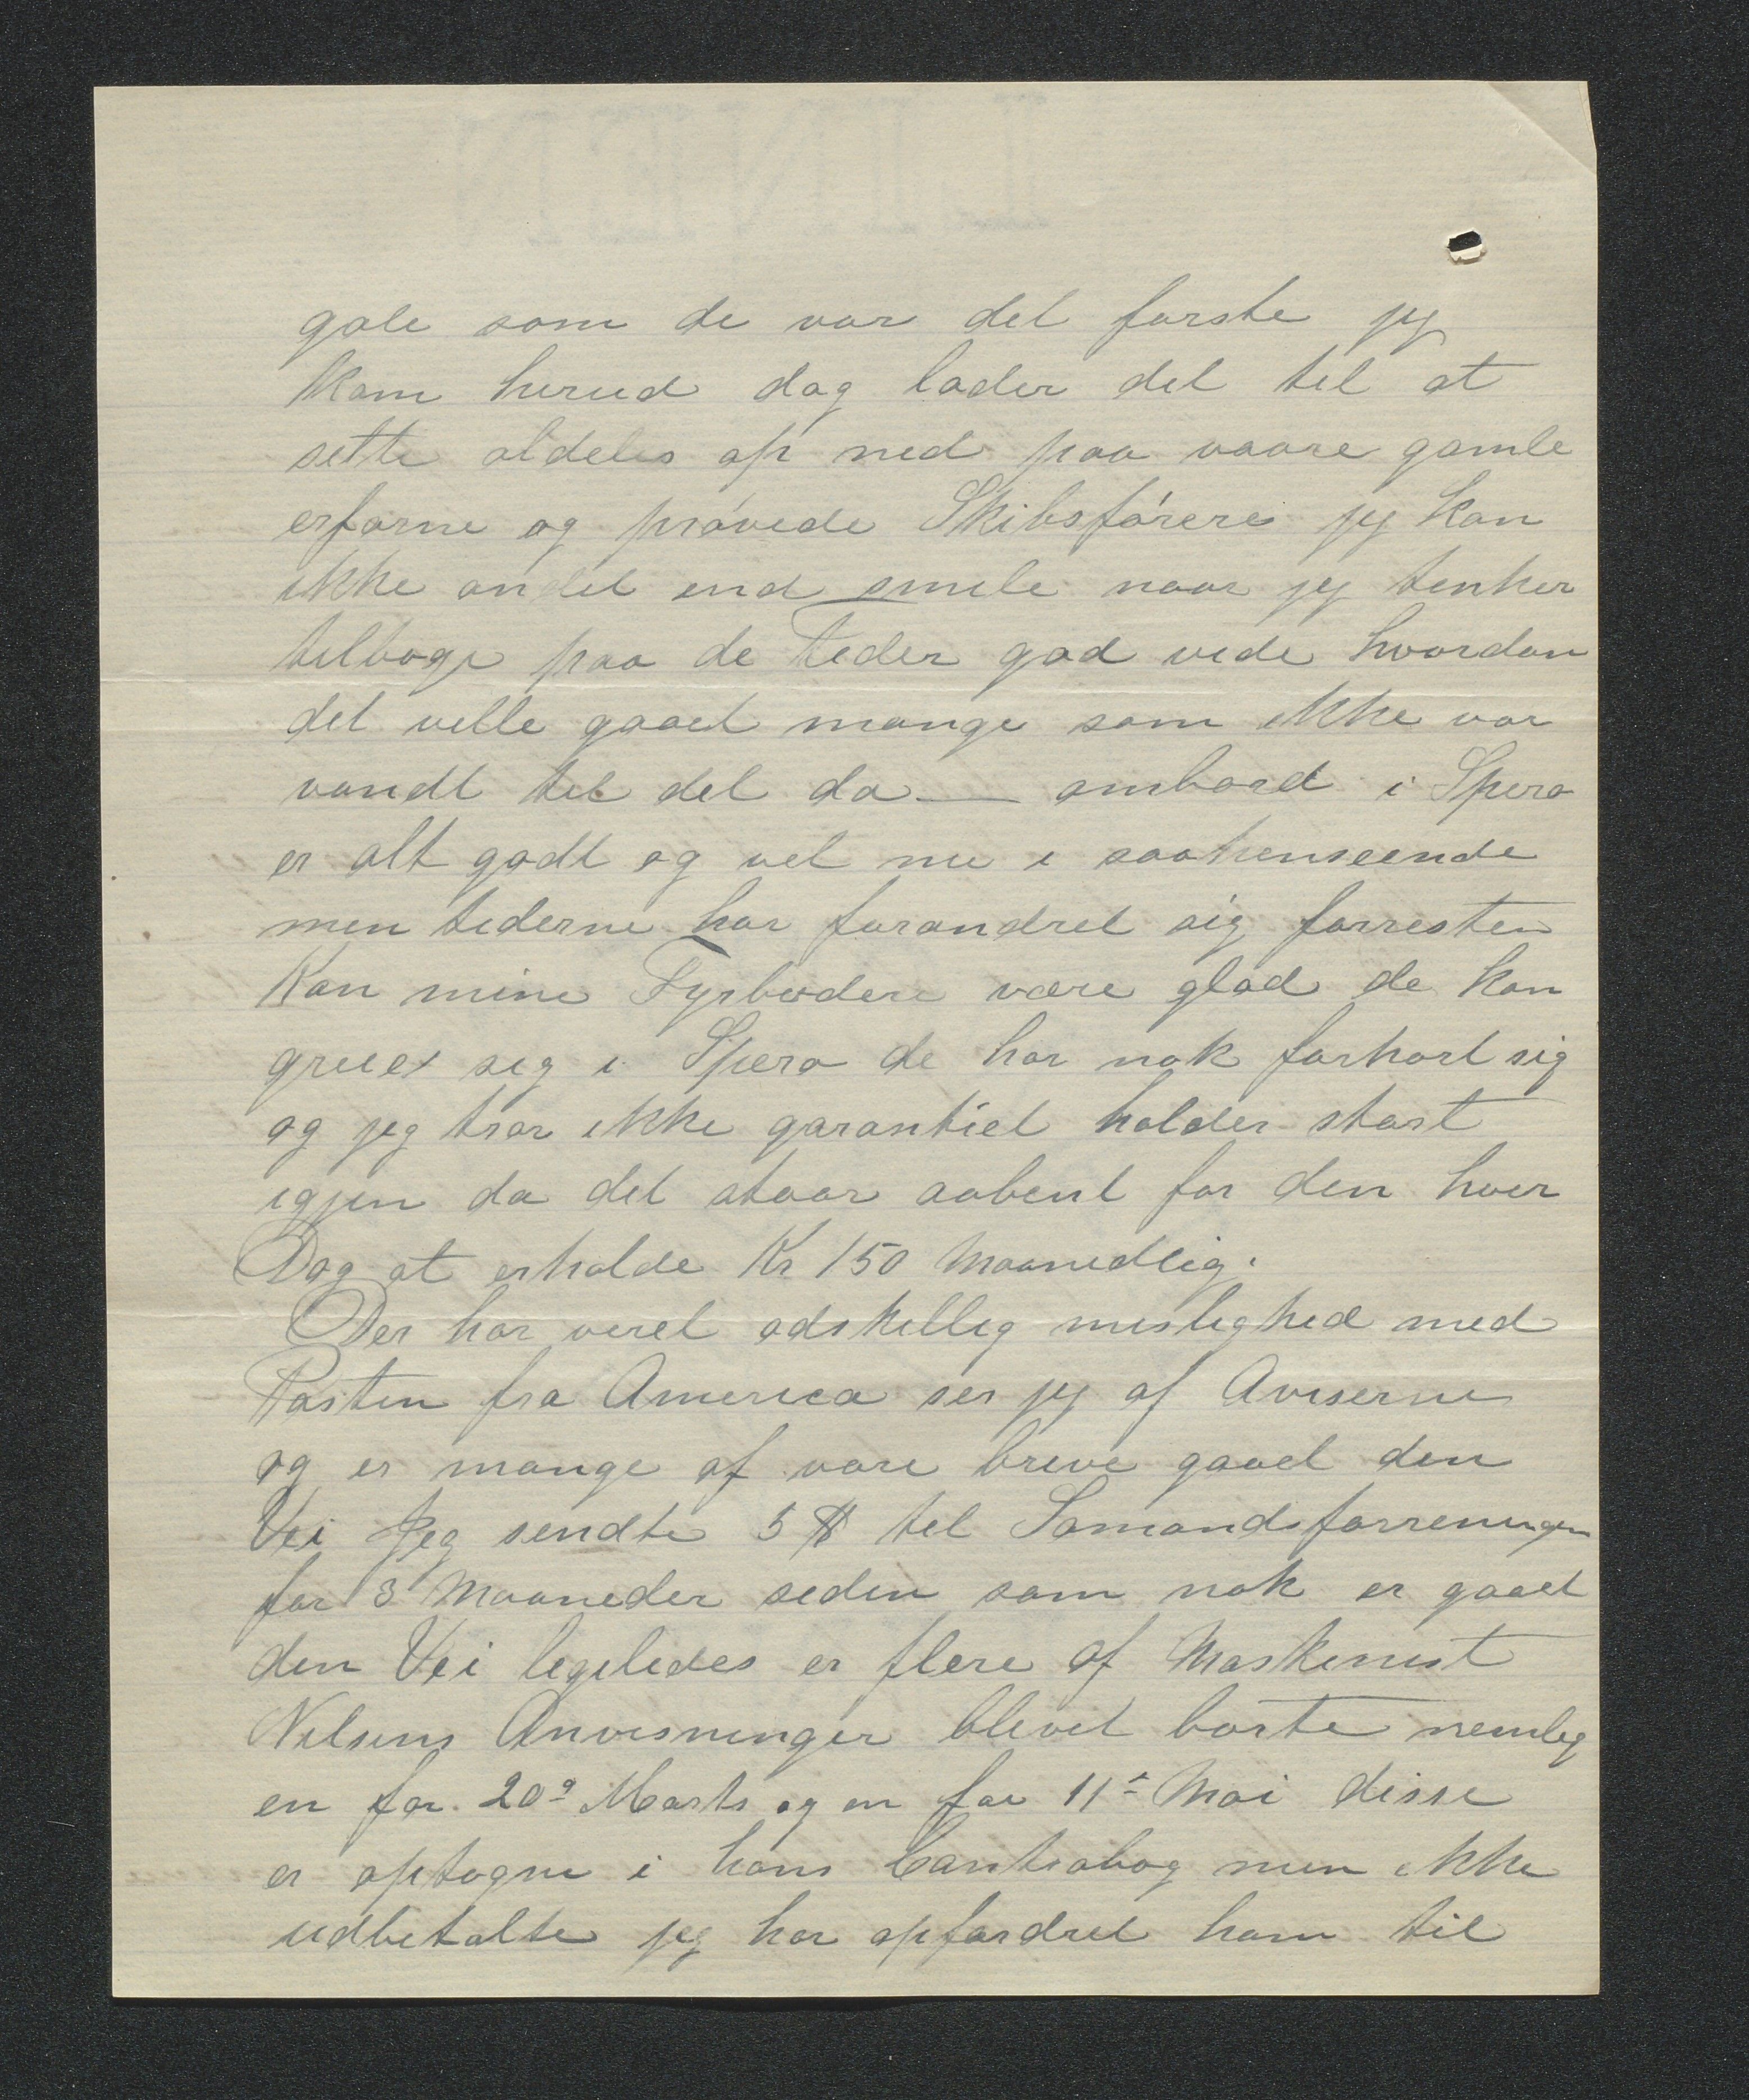 gale som de var det første jeg
kom herud dog lader det til at
sette aldeles op ned paa vaare gamle
erfarne og prøvede Skibsførere jeg kan
ikke andet end smile naar jeg tenker
tilbage paa de Tider gad vide hvordan
det ville gaaet mange som ikke var
vandt til det da — ombord i Spero
er alt godt og vel nu i saahenseende
men tiderne har forandret sig forresten
Kan mine Fyrbødere være glad de kan
 sig i Spero de har nok forhort sig
og jeg tror ikke garantiet holder start
igjen da det staar aabent for den hver
Dag at erholde Kr 150 Maanedlig.
Der har veret adskillig mislighed med
Posten fra America ser jeg af Aviserne
og er mange af vore breve gaaet den
Vei Jeg sendte 5 $ til Sømandsforreningen
for 3 Maaneder siden som nok er gaaet
den Vei ligeledes er flere af Maskinist
Nilsens Anvisninger blevet borte nemlig
en for 20de Marts og en for 11te Mai disse
er optagne i hans Contrabog men ikke
udbetalte jeg har opfordret ham til